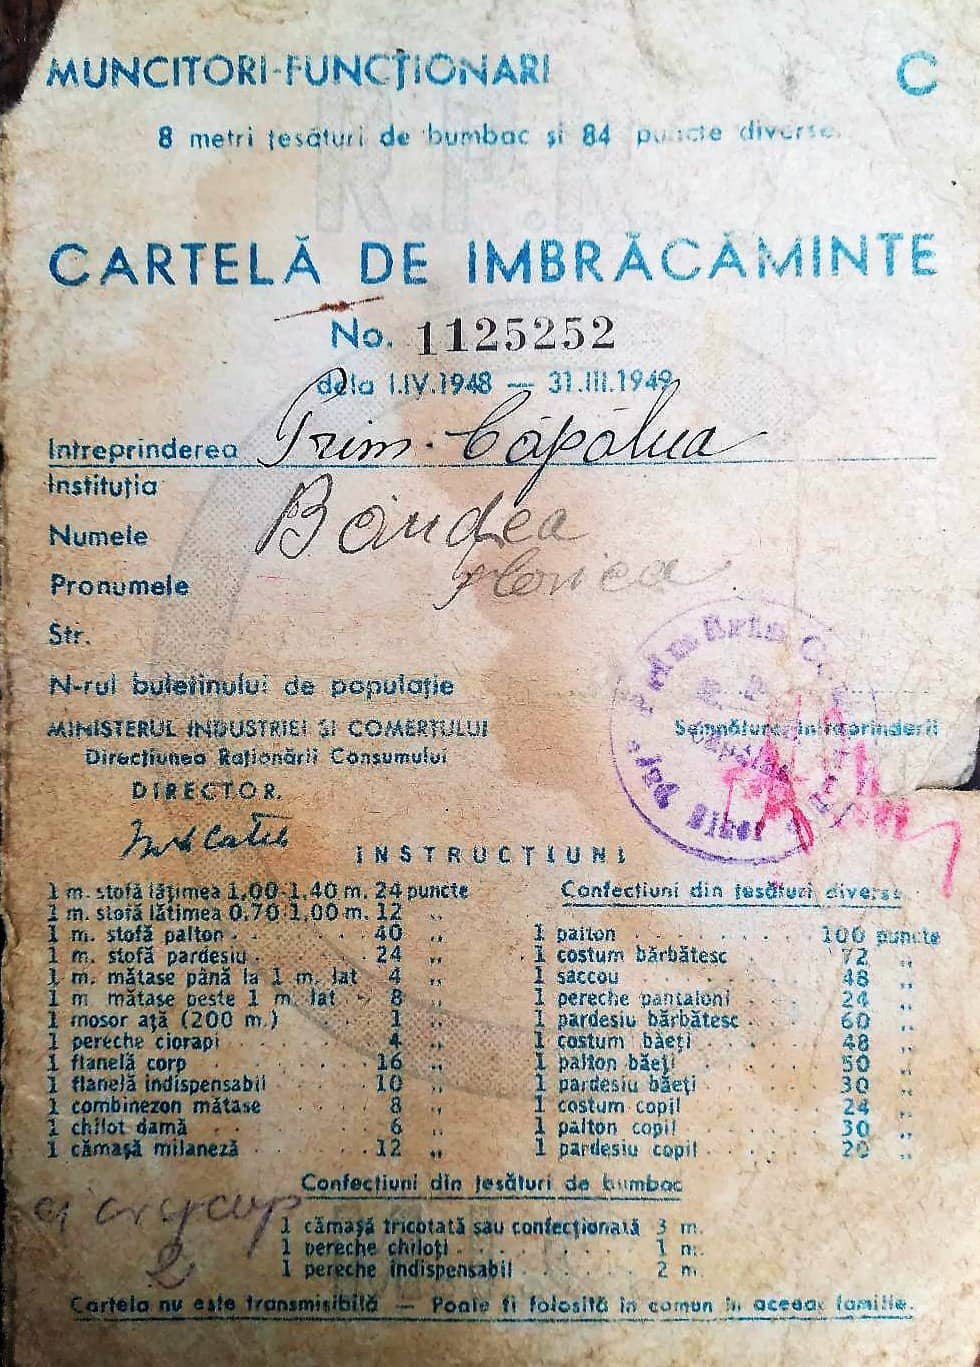 MUNCITORI-FUNCȚIONARI C
8 metri țesături de bumbac și 84 puncte diverse.
R.P.R.
CARTELĂ DE IMBRĂCĂMINTE
No. 1125252
dela 1.IV.1948 — 31.III.1949
Intreprinderea Prim. Căpâlna
Instituția
Numele Bândea
Pronumele Florica
Str.
N-rul buletinului de populație
MINISTERUL INDUSTRIEI ȘI COMERȚULUI
Direcțiunea Raționării Consumului
DIRECTOR,
Semnătura intreprinderii
INSTRUCȚIUNI
1 m. stofă lățimea 1,00-1,40 m. 24 puncte
1 m. stofă lățimea 0,70-1,00 m. 12 „
1 m. stofă palton 40 „
1 m. stofă pardesiu 24 „
1 m. mătase până la 1 m. lat 4 „
1 m mătase peste 1 m. lat 8 „
1 mosor ață (200 m.) 1 „
1 pereche ciorapi 4 „
1 flanelă corp 16 „
1 flanelă indispensabil 10 „
1 combinezon mătase 8 „
1 chilot damă 6 „
1 cămașă milaneză 12 „
Confecțiuni din țesături diverse
1 palton 100 puncte
1 costum bărbătesc 72 „
1 saccou 48 „
1 pereche pantaloni 24 „
1 pardesiu bărbătesc 60 „
1 costum băeți 48 „
1 palton băeți 50 „
1 pardesiu băeți 30 „
1 costum copil 24 „
1 palton copil 30 „
1 pardesiu copil 20 „
Confecțiuni din țesături de bumbac
1 cămașă tricotată sau confecționată 3 m.
1 pereche chiloți 1 m.
1 pereche indispensabil 2 m.
2
Cartela nu este transmisibilă — Poate fi folosită in comun in aceeaș familie.